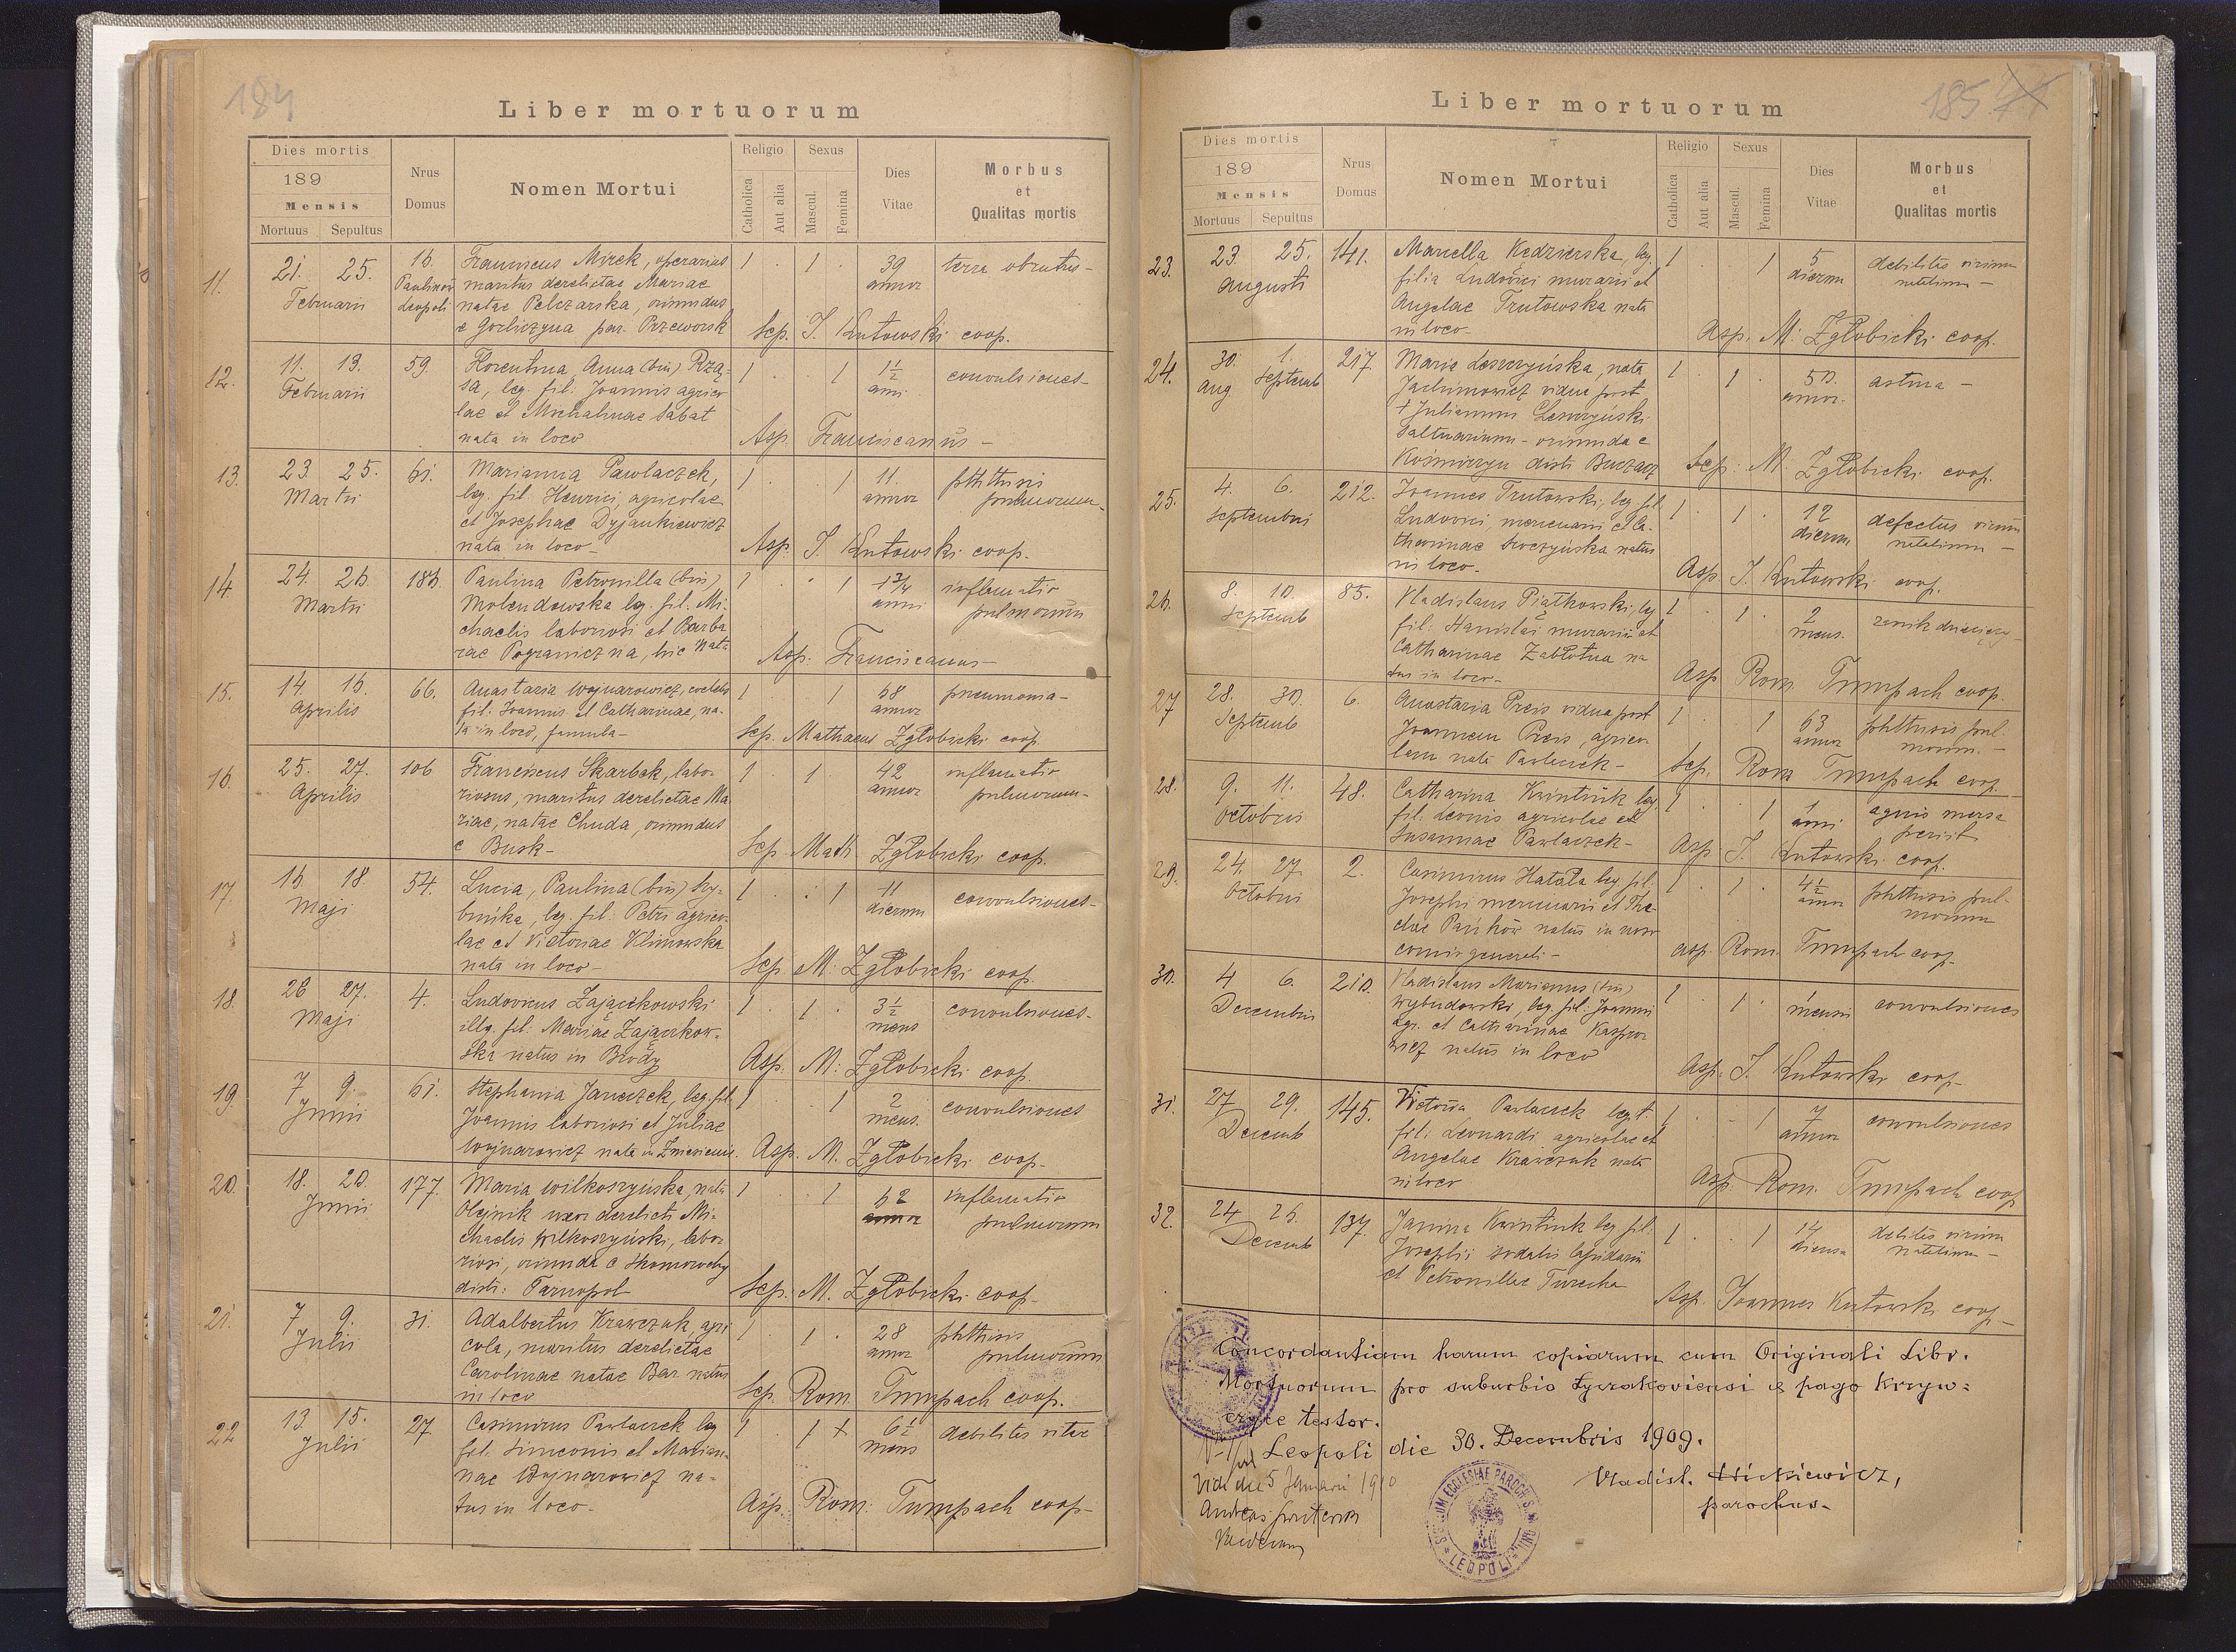 184
Liber mortuorum
Dies mortis
189
Mensis
Mortuus Sepultus
Nrus Domus
Nomen Mortui
Religio
Catholica
Aut alia
Sexus
Mascul.
Femina
Dies Vitae
Morbus et Qualitas mortis
11. 21. 25. 16. Franciscus Mirek, operarius 1 . 1 . 39 terra obrutus-
Februarii maritus derelictae Mariae annor
Leopoli natae Pelczarska, oriundus
e Gorliczyna par. Przeworsk Sep. J. Kutowski coop.
12. 11. 13. 59. Florentina Anna (bin) Rzą- 1 . . 1 1½ convulsiones-
Februarii sa, leg. fil. Joannis agrico anni
lae et Michalinae Sabat
nata in loco Asp. Franciscanus -
13. 23. 25. 61. Marianna Pawlaczek, 1 . . 1 11. phthisis
Martii leg. fil. Henrici, agricolae annor pulmorum-
et Josephae Dyjankiewicz
nata in loco- Asp. J. Kutowski coop.
14. 24. 26. 186. Paulina Petronilla (bin) 1 . . 1 1¾ inflamatio
Martii Molendowska leg. fil. Mi- anni pulmorum
chaelis laboriosi et Barba
rae Pograniczna, hic nata Asp. Franciscanus-
15. 14. 16. 66. Anastazia Wojnarowicz, coelebs 1 . . 1 68 pneumonia-
Aprilis fil. Joannis et Catharinae, na- annor
ta in loco, famula- Sep. Mathaeus Zgłobicki coop.
16. 25. 27. 106 Franciscus Skarbek, labo- 1 . 1 . 42 inflamatio
Aprilis riosus, maritus derelictae Ma annor pulmorum-
riae, natae Chuda, oriundus
e Busk- Sep. Math. Zgłobicki coop.
17. 16 18. 54. Lucia, Paulina (bin) Ry- 1 . . 1 11 convulsiones-
Maji leg. fil. Petri agrico- dierum
lae et Victoriae Klimowska
nata in loco- Sep. M. Zgłobicki coop.
18. 26 27. 4. Ludovicus Zajączkowski 1 . 1 . 3½ convulsiones-
Maji illg. fil. Mariae Zajączkow- mens
ska natus in Brody Asp. M: Zgłobicki coop.
19. 7 9. 61. Stephania Janczek, leg. fil. 1 . . 1 2 convulsiones
Junii Joannis laboriosi et Juliae mens.
Wojnarowicz nata in Zniesienie. Asp. M. Zgłobicki coop-
20. 18. 20. 177. Maria Wilkoszyńska, nata 1 . . 1 62 inflamatio
Junii Olejnik uxor derelicti Mi- annor pulmorum
chaelis Wilkoszyński, labo-
riosi, oriunda e Skomorochy
distr: Tarnopol Sep. M. Zgłobicki coop-
21. 7 9. 31. Adalbertus Krawczuk agri 1 . 1 . 28 phthisis
Julii cola, maritus derelictae annor pulmorum
Carolinae natae Bar natus
in loco Sep. Rom Tumpach coop.
22 13. 15. 27 Casimirus Pawlaczek leg 1 . 1 + 6½ debilitas vitae
Julii fil. Simeonis et Marian- mens
nae Wojnarowicz na-
tus in loco- Asp. Rom: Tumpach coop-
185
Liber mortuorum
Dies mortis
189
Mensis
Mortuus Sepultus
Nrus Domus
Nomen Mortui
Religio
Catholica
Aut alia
Sexus
Mascul.
Femina
Dies Vitae
Morbus et Qualitas mortis
23. 23. 25. 141. Marcella Kędzierska, leg. 1 . . 1 5 debilitas virium
Augusti filia Ludovici murarii et dierum natalium -
Angelae Trutowska nata
in loco- Asp. M: Zgłobicki coop.
24. 30. 1. 217 Maria Leszczyńska, nata 1 . 1 . 50. astma -
Aug Septemb Jachimowicz vidua post annor.
+ Julianum Leszczyński
Saltuarium - oriunda e
Kośmierzyn distr Buczacz Sep. M. Zgłobicki coop.
25. 4. 6. 212. Joannes Trutowski, leg fil 1 . 1 . 12 defectus virium
Septembri Ludovici, mercenarii et Ca- dierum natalium -
tharinae natus
in loco. Asp. J. Kutowski coop.
26. 8. 10. 85. Vladislaus Piątkowski, leg 1 . 1 . 2
Septemb fil. Stanislai murarii et mens.
Catharinae Zabłotna na
tus in loco- Asp Rom. Tumpach coop.
27 28. 30. 6. Anastazia Preis vidua post 1 . . 1 63 phthisis pul-
Septemb Joannem Preis, agrico annor morum. -
lam nata Pawlaczek- Sep. Rom Tumpach coop.
28. 9. 11. 48. Catharina Kwintiuk leg. 1 . . 1 1 aquis mersa
Octobris fil. Leonis agricolae et anni periit
Susannae Pawlaczek- Asp. J. Kutowski coop.
29. 24. 27. 2. Casimirus Hatala leg fil. 1 . 1 . 4½ phthisis pul-
Octobris Josephi mercenarii et The- annor morum
clae Pańków natus in noso
comio generali- Asp. Rom. Tumpach coop-
30. 4 6. 210. Vladislaus Marianus (bin) 1 . 1 . 1 convulsiones
Decembris Wybudowski, leg. fil. Joannis mensis
agr. et Catharinae Kaspro
wicz natus in loco Asp. J. Kutowski coop-
31. 27 29. 145. Victoria Pawlaczek leg t. 1 . . 1 7 convulsiones
Decemb fil: Leonardi agricolae et annor
Angelae Krawczuk nata
in loco Asp. Rom. Tumpach coop
32. 24 26. 137. Janina Kwintiuk leg fil. 1 . . 1 14 debilitas virium
Decemb Josephi sodalis lapidarii dierum natalium -
et Petronillae Turecka Asp. Joannes Kutowski coop-
Concordantiam harum copiarum cum Originali Libr.
Mortuorum pro suburbio Łyczakoviensi & pago Krzyw=
czyce testor.
Leopoli die 30. Decembris 1909.
Vidi die 5 Januarii 1910
Vladisl.
parochus-
SIGILLUM ECCLESIAE PAROCH
LEOPOLI